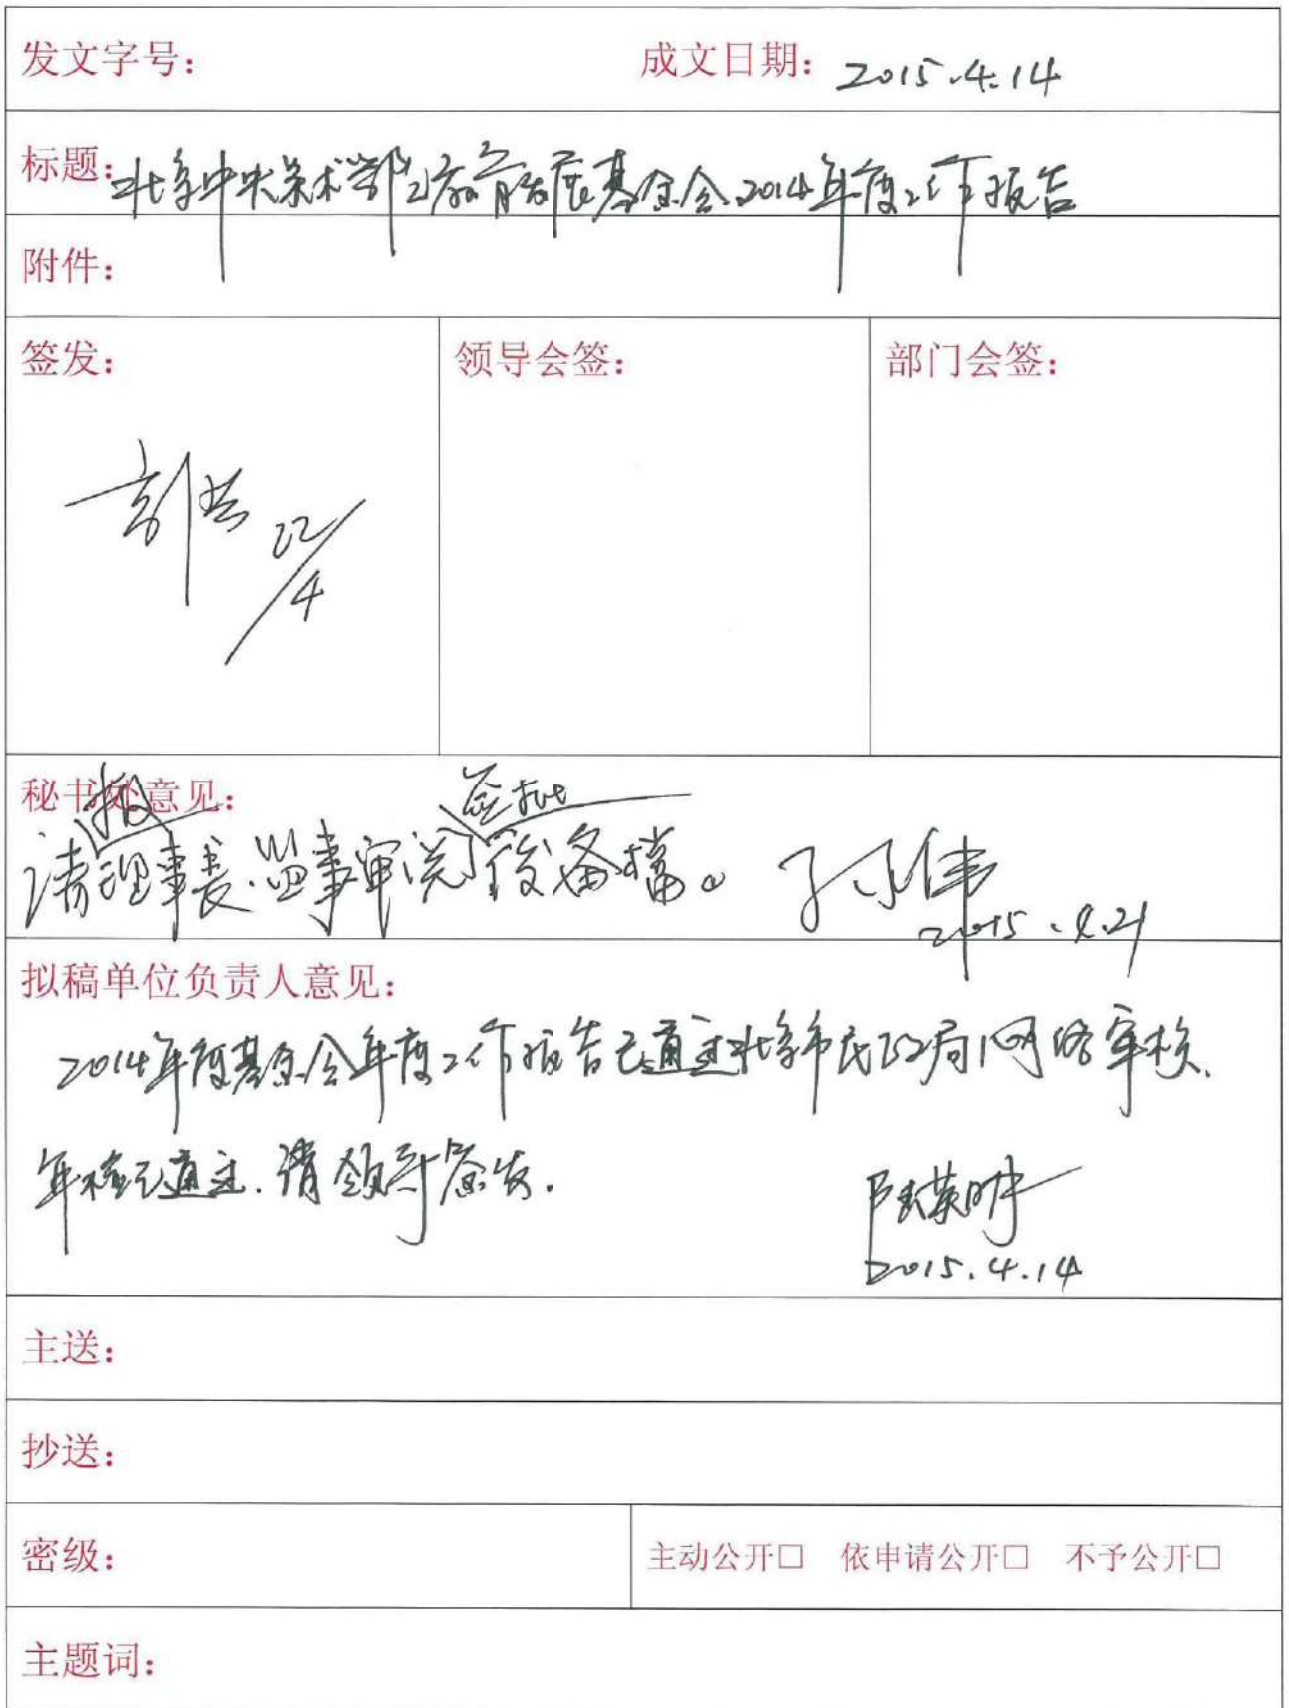 发文字号： 成文日期：2015.4.14
标题：北京中央美术学院教育发展基金会2014年度工作报告
附件：
签发： 领导会签： 部门会签：
22/4
秘书处意见：
报 签批
请理事长、监事审阅后备档。
2015.4.21
拟稿单位负责人意见：
2014年度基金会年度工作报告已通过北京市民政局网络审核.
年检已通过.请领导签发.
2015.4.14
主送：
抄送：
密级： 主动公开□ 依申请公开□ 不予公开□
主题词：